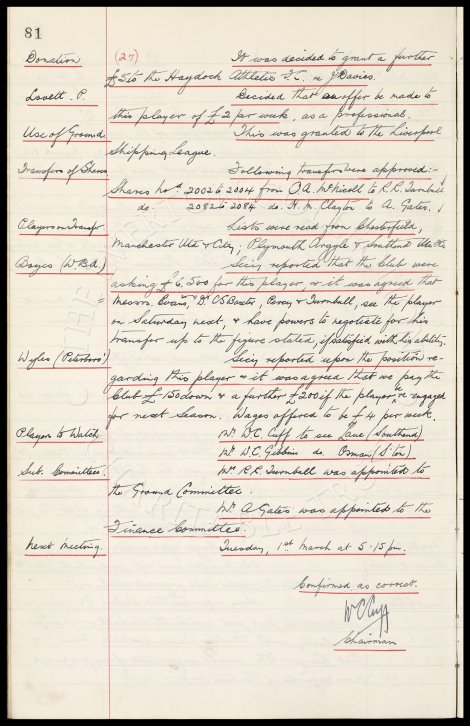 81
Donation (27) It was decided to grant a further
£5 to the Haydock Athletic F.C. re J Davies.
Lovett. P. Decided that an offer be made to
this player of £2 per week, as a professional.
Use of Ground. This was granted to the Liverpool
Shipping League.
Transfers of Shares Following transfers were approved:-
Shares nos. 2002 to 2004 from O.A. McNicoll to R.R. Turnbull
do. 2082 to 2084 do. H.M. Clayton to A. Gates.
Players on Transfer Lists were read from Chesterfield,
Manchester Utd & City, Plymouth Argyle & Southend Utd
Boyes (W.B.A.) Secy reported that the Club were
asking £6,500 for this player, & it was agreed that
Messrs. Evans, Dr. C S Baxter, Percy & Turnbull, see the player
on Saturday next, & have powers to negotiate for his
transfer up to the figure stated, if satisfied with his ability.
Wyles (Peterboro') Secy reported upon the position re-
garding this player & it was agreed that we pay the
Club £150 down & a further £200 if the player re engaged
for next Season. Wages offered to be £4 per week.
Players to Watch. Mr. W.C. Cuff to see Lane (Southend)
Mr. W.C. Gibbins do. Osman (S'ton)
Sub. Committees. Mr. R.R. Turnbull was appointed to
the Ground Committee.
Mr. A Gates was appointed to the
Finance Committee.
Next Meeting. Tuesday, 1st March at 5-15 pm.
Confirmed as correct.
W C Cuff
Chairman